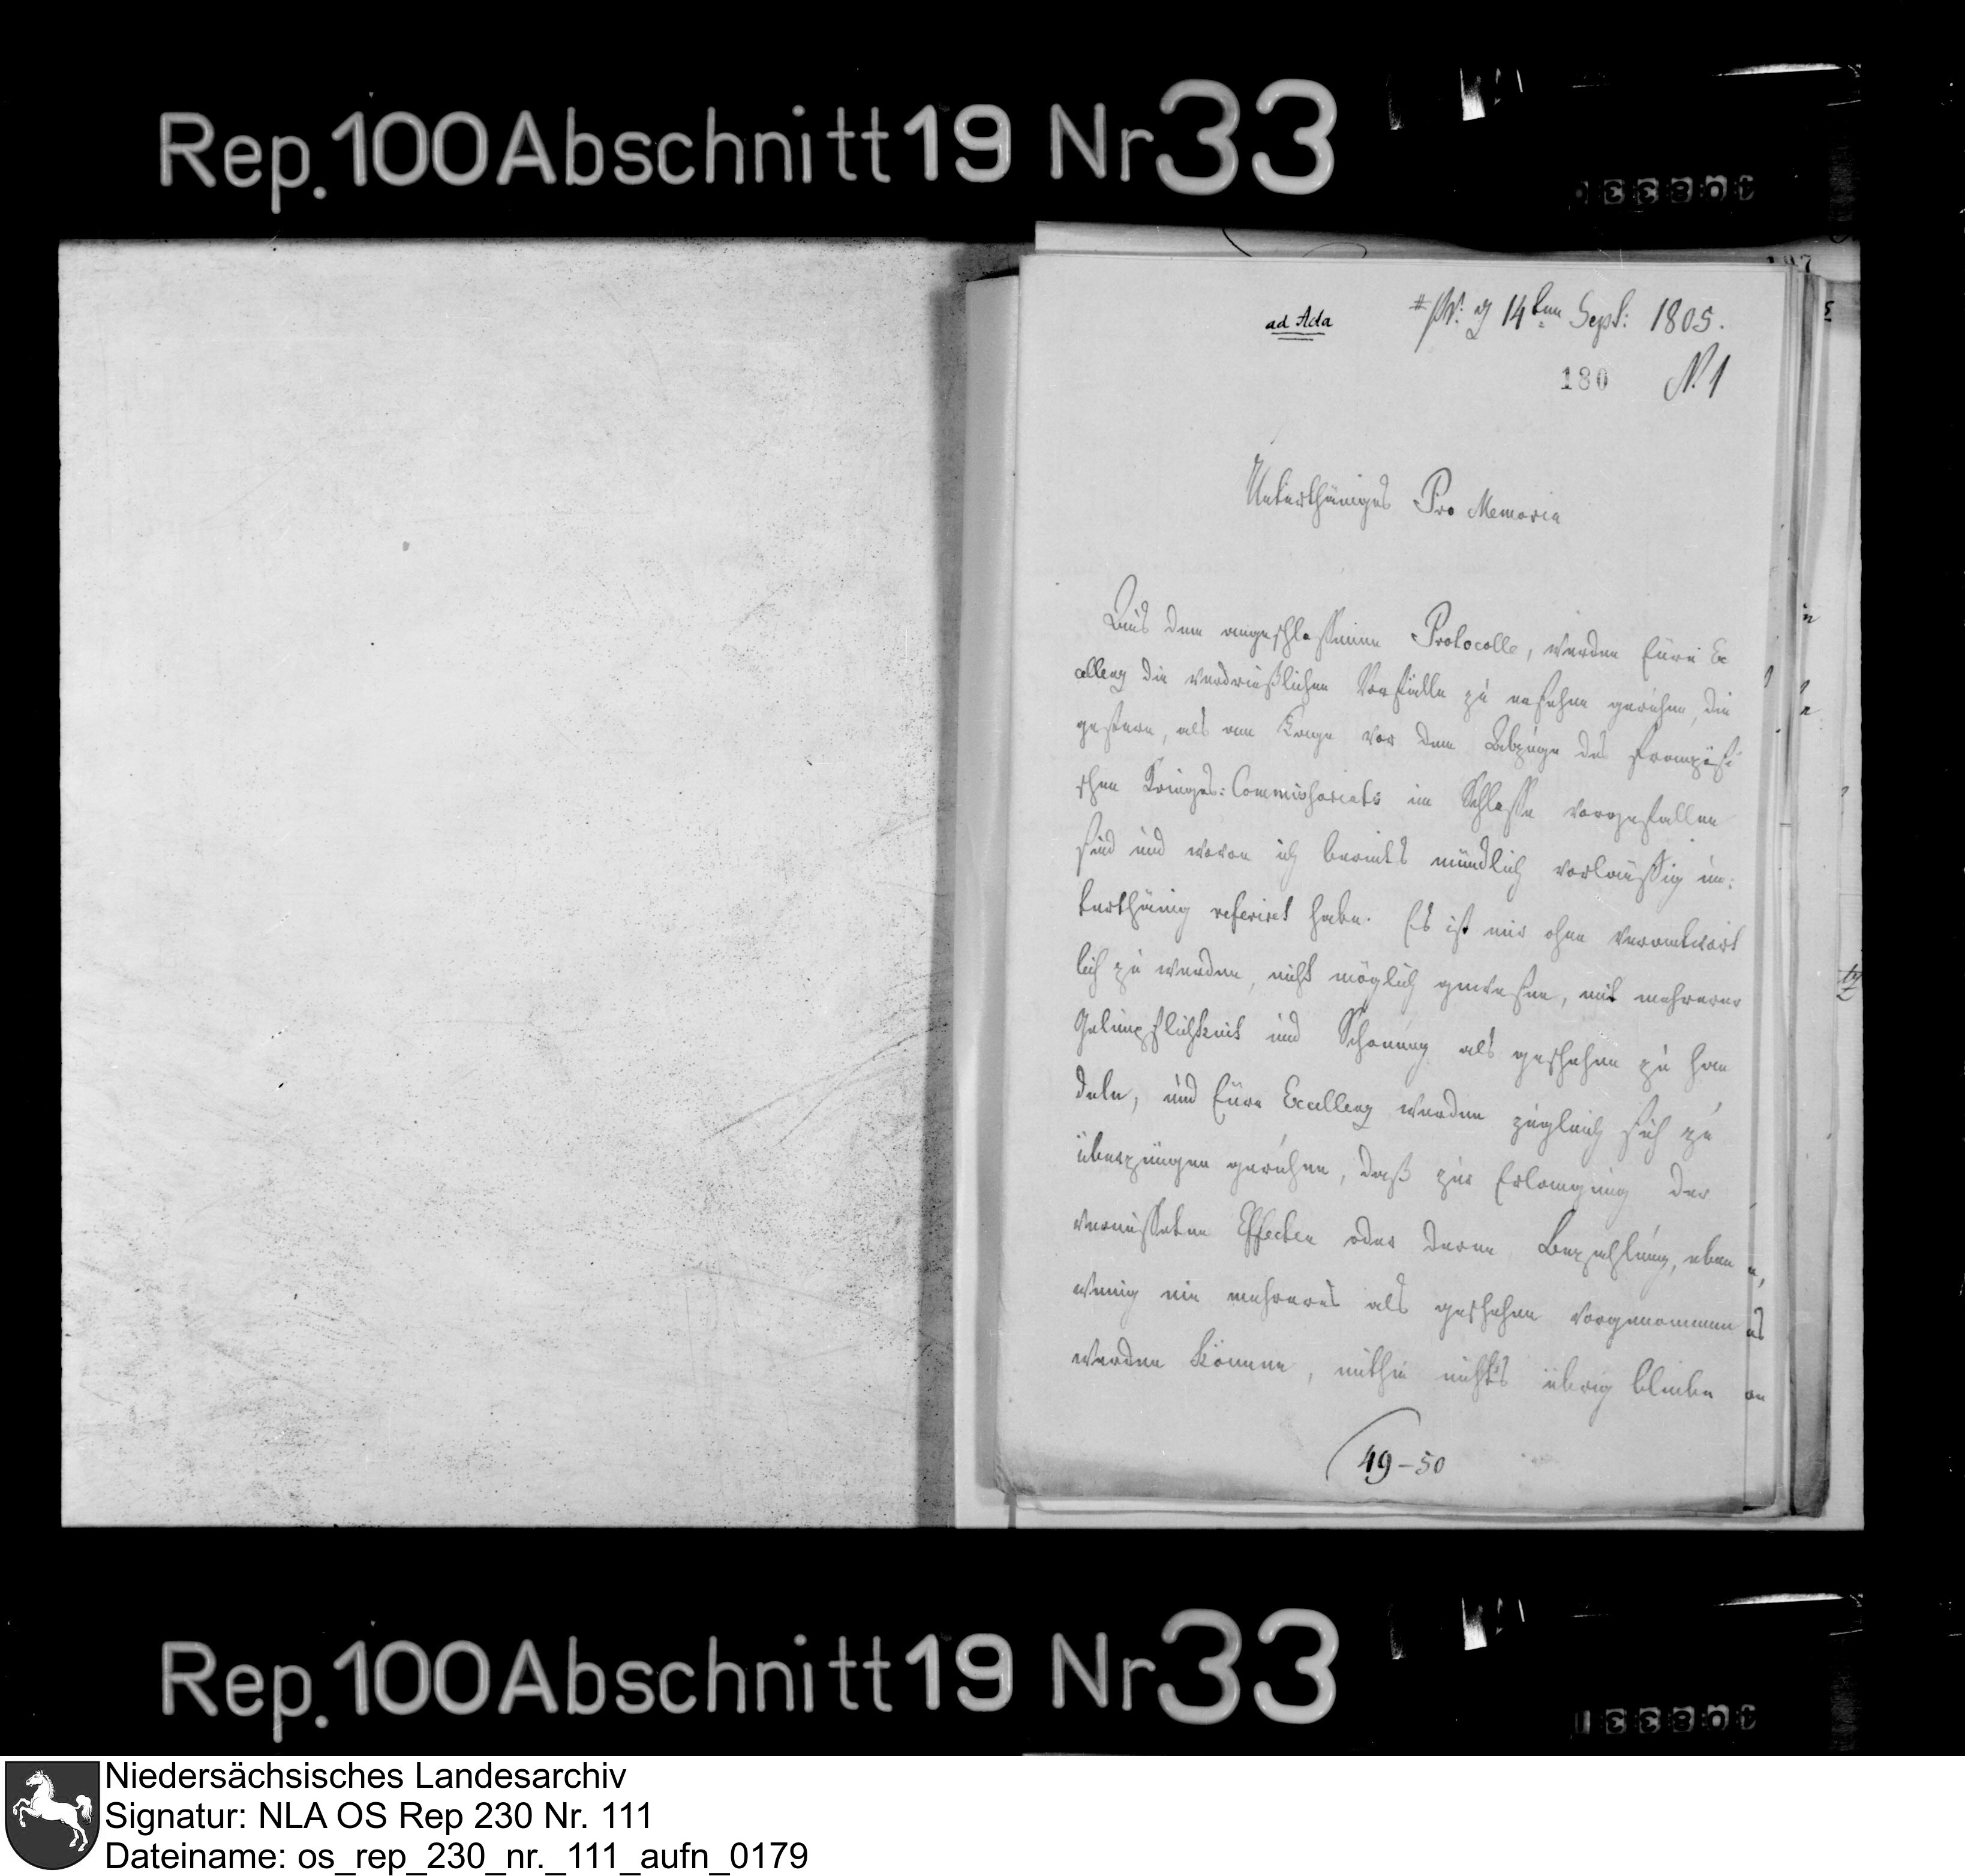 Rep. 100 Abschnitt 19 Nr 33
ad Acta
14ten Sept: 1805.
180 N. 1
Unterthäniges Pro Memoria
Aus dem angeschlossenen Protocolle, werden Eure Ex
cellenz die verdrießlichen Vorfälle zu ersehen geruhen, die
gestern, als am Tage vor dem Abzuge des französi
schen Krieges: Commissariats im Schlosse vorgefallen
sind und wovon ich bereits mündlich vorläufig un:
terthänig referiret habe. Es ist mir ohne verantwort
lich zu werden, nicht möglich gewesen, mit mehrerer
Gelimpflichkeit und Schonung als geschehen zu han
deln, und Eure Excellenz werden zugleich sich zu
überzeugen geruhen, daß zur Erlangung der
vermißeten Effecten oder deren Bezahlung, eben
wenig ein mehreres als geschehen vorgenommen
werden können, mithin nichts übrig bliebe
49-50
Rep. 100 Abschnitt 19 Nr 33
Niedersächsisches Landesarchiv
Signatur: NLA OS Rep 230 Nr. 111
Dateiname: os_rep_230_nr._111_aufn_0179